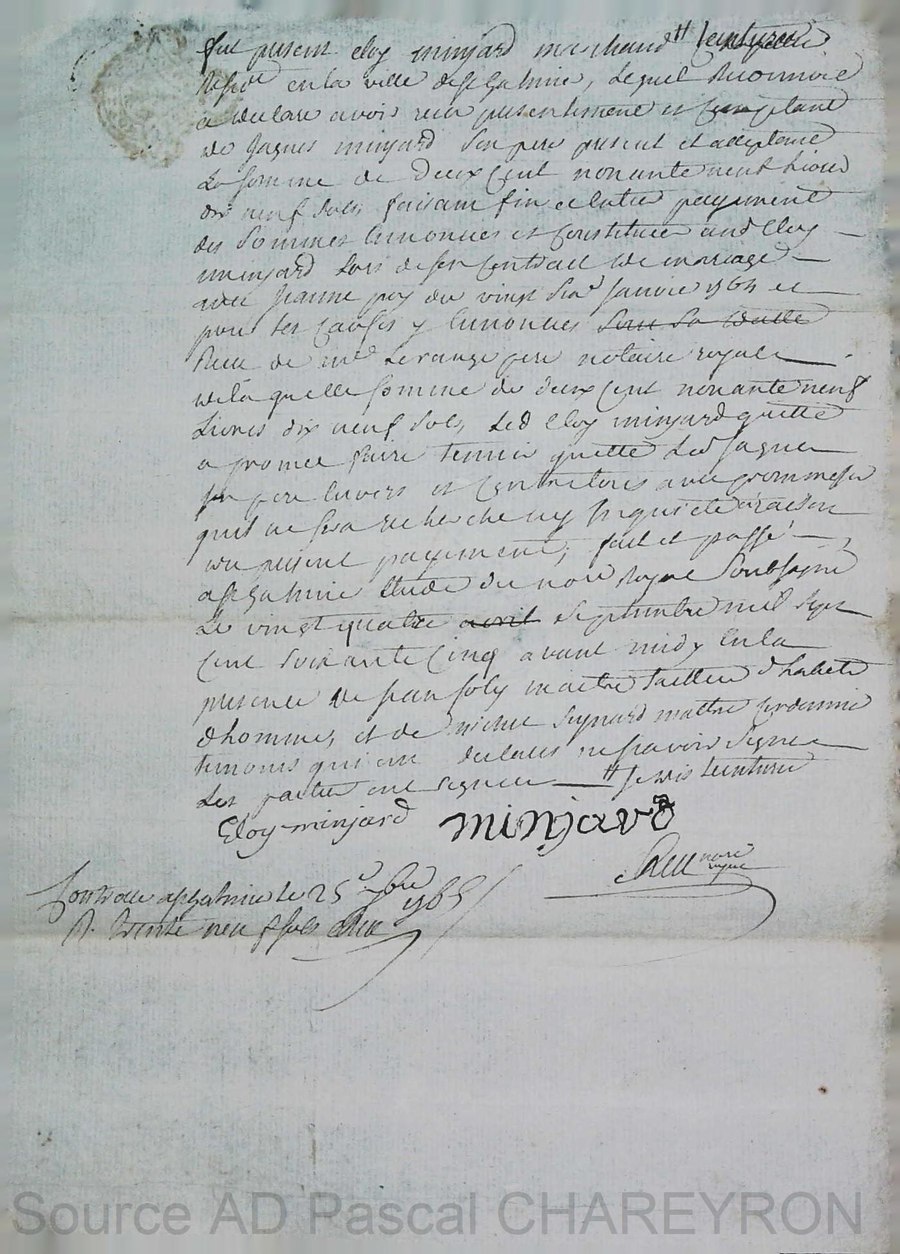 fut present eloy minjard marchand # teinturier
Resid<sup>t</sup> en la ville de st galmier, Lequel Reconnoit
a declare avoir recu presentement et comptant
de Jaques minjard son pere present et acceptant
La somme de deux cent nonante neuf livres
dix neuf sols faisant fin et entier payement
des sommes Enoncees et Constituee aud Eloy
minjard Lors de son Contract de mariage
avec Jeanne puy du vingt janvier 1764 et
pour les causes y Enoncees sous sa datte
Recu de m<sup>e</sup> pere notaire royal
de la quelle somme de deux cent nonante neuf
Livres dix neuf sols, Led Eloy minjard quitte
a promet faire tenir quitte Led Jaques
son pere Envers et Contre tous avec promesse
quil ne sera recherche ny Inquiete a raison
du present payement, fait et passé
a st galmier Etude du no<sup>re</sup> Royal soubsigné
Le vingt quatre avril septembre mil sept
cent soixante cinq avant midy En la
presence de jean joly maitre tailleur d'habits
d'homme, et de michel maitre cordonnie
temoins qui ont declares ne scavoir signer
Les parties ont signees # teinturier
Eloy minjard minjard
no<sup>re</sup> royal
Controlle a st galmier le 25<sup>e</sup> 7bre 1765
R. trente neuf sols
Source AD Pascal CHAREYRON